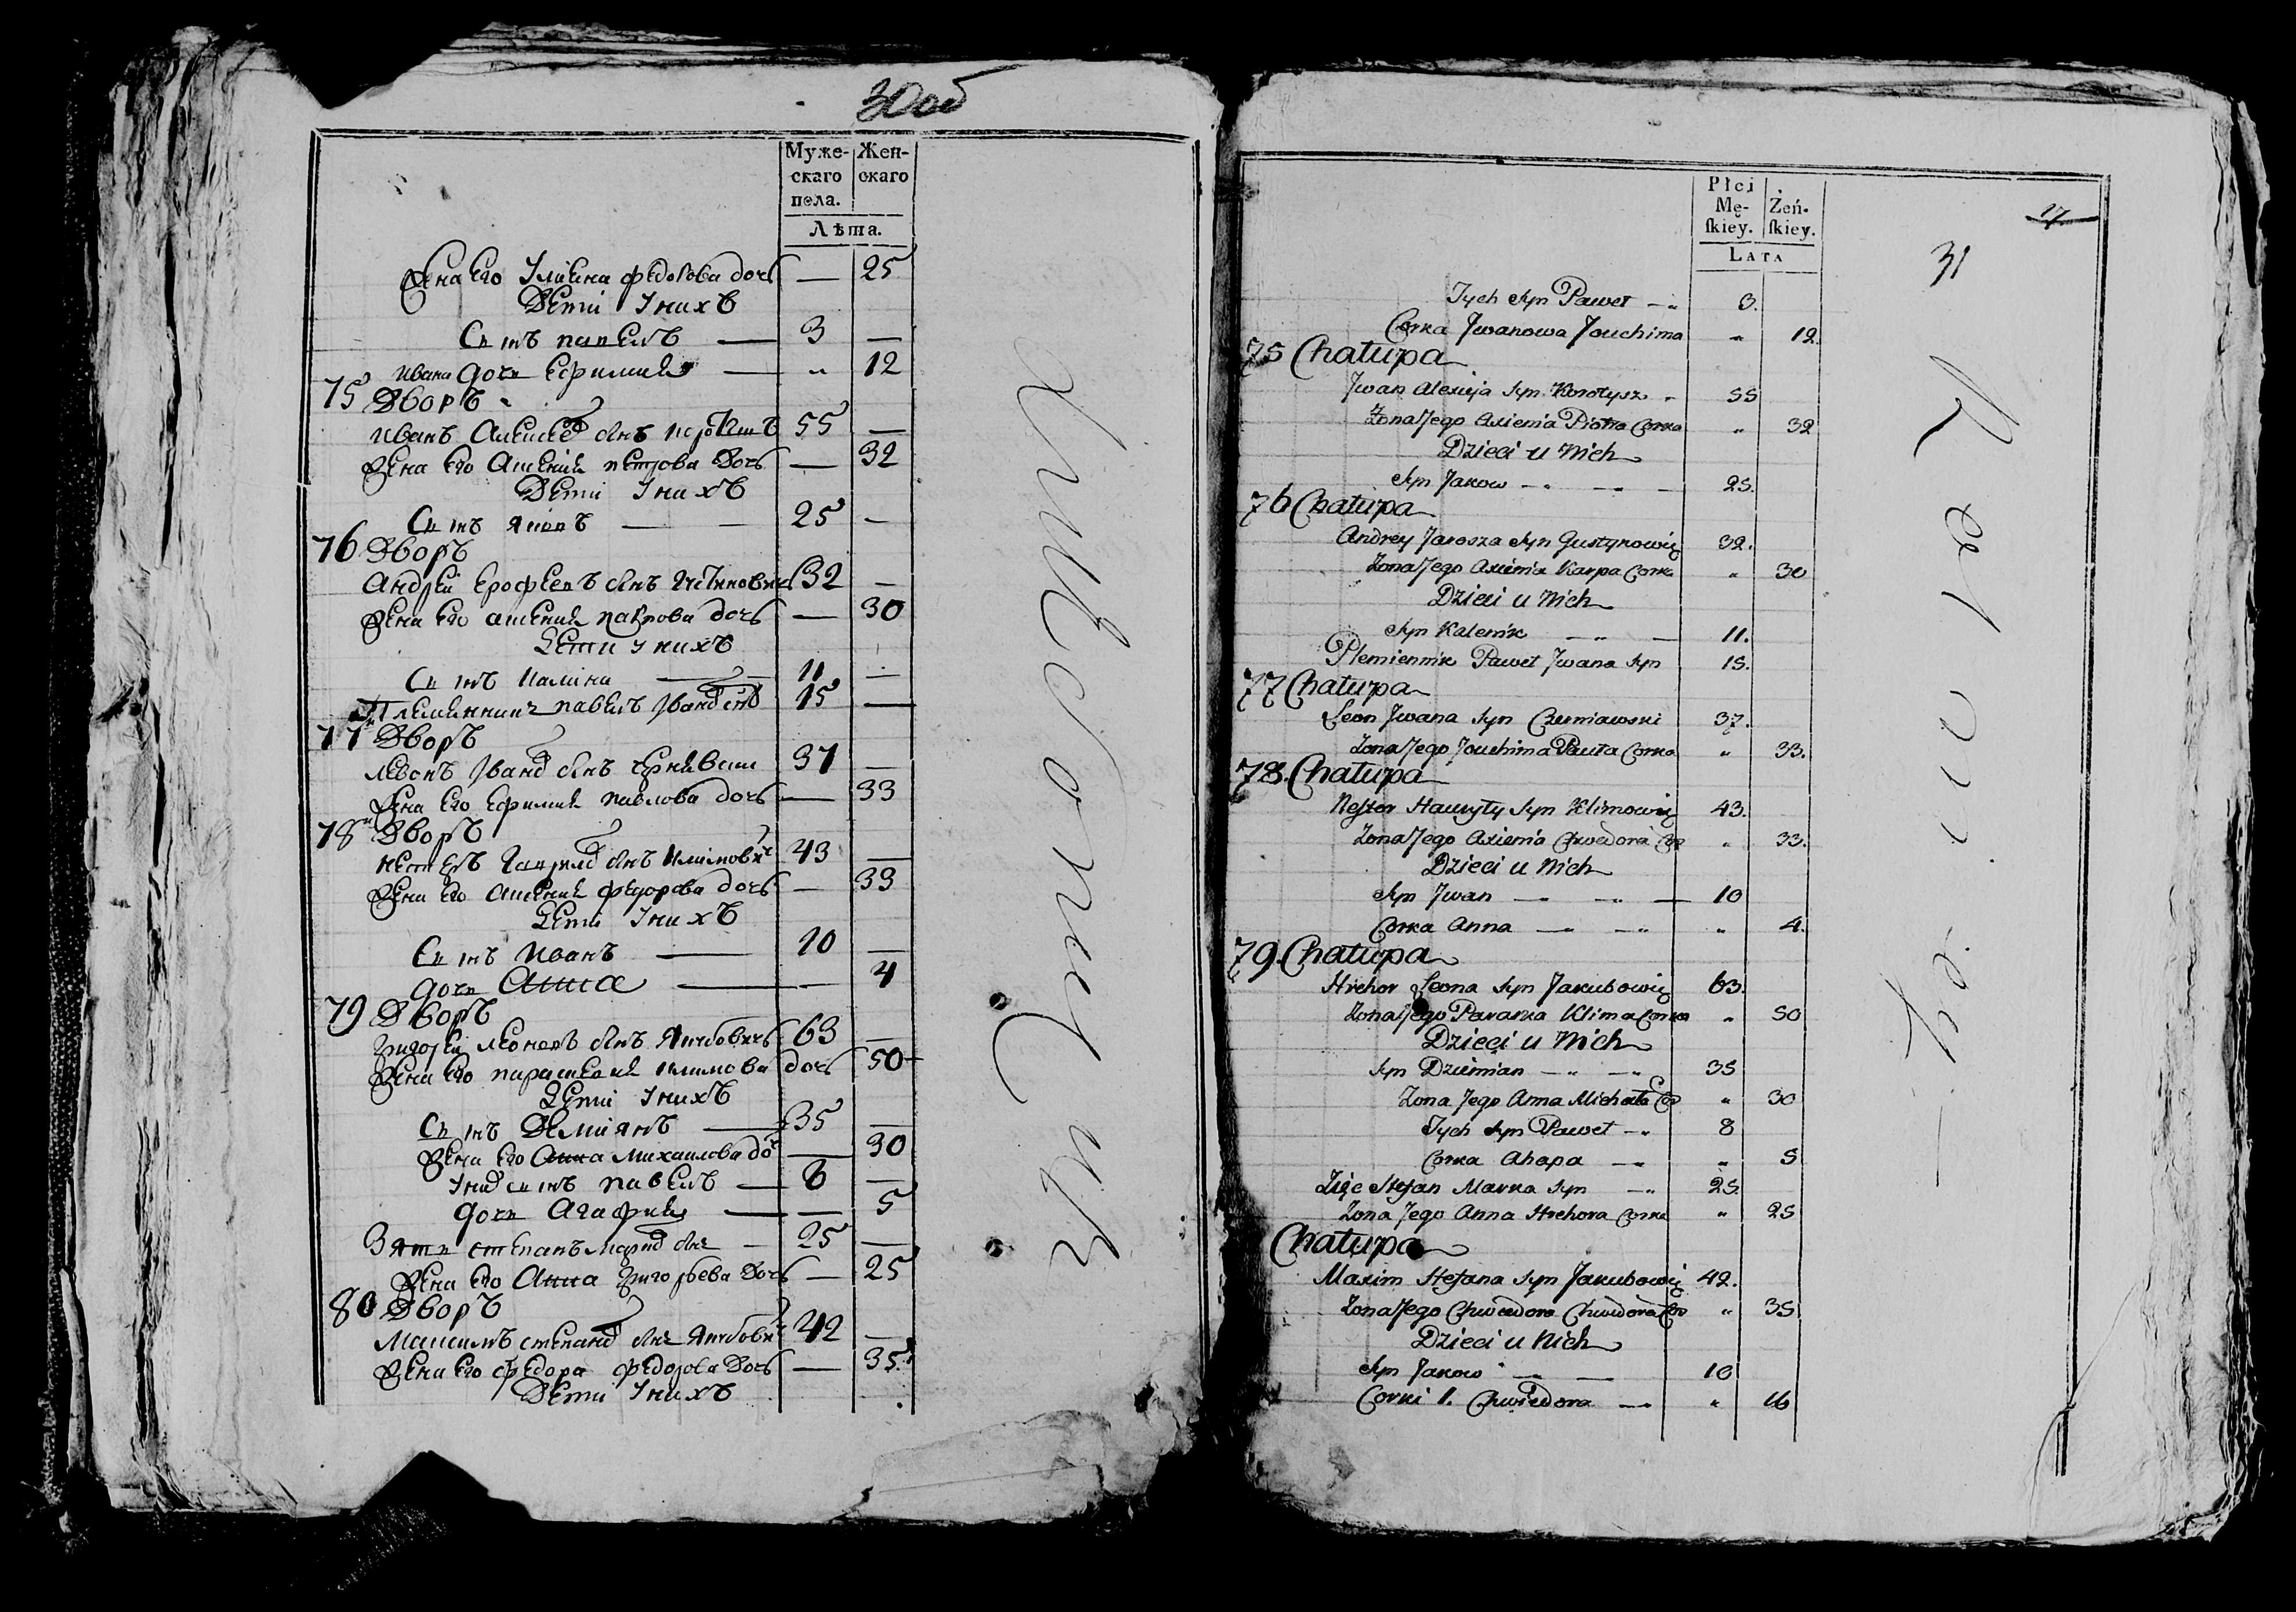 30об
Муже- Жен-
скаго скаго
пола.
Лѣта.
Жена Его Улияна федорова дочь — 25
Дети Унихъ
Сынъ павелъ — 3 —
ивана дочь Ефимия — „ 12
75 Дворъ
иванъ Алексея сынъ 55 —
Жена Его Аксения петрова Дочь — 32
Дети Унихъ
Сынъ яковъ — 25 —
76 Дворъ
Андрей Ерофеевъ сынъ 32 —
Жена Его аксения карпова дочь — 30
Дети унихъ
Сынъ калина — 11 —
Племянникъ павелъ Ивана снъ 15 —
77 Дворъ
левонъ Ивана сынъ чернявски 37 —
Жена Его Ефимия павлова дочь — 33
78 Дворъ
нестеръ Гаврила сынъ климовичъ 43 —
Жена Его аксения федорова дочь — 33
Дети Унихъ
Сынъ иванъ — 10 —
дочь Анна — — 4
79 Дворъ
григорей леоновъ сынъ якубовичъ 63 —
Жена Его параскевия климова дочь 50
Дети Унихъ
Сынъ Демиянъ — 35 —
Жена Его Анна михаилова доч — 30
Унихъ сынъ павелъ — 8 —
дочь Агафия — — 5
Зять степанъ марка снъ — 25 —
Жена Его Анна григорьева Дочь — 25
80 Дворъ
максимъ степана снъ якубовичъ 42 —
Жена Его федора федорова Дочь — 35
Дети Унихъ
Płci
Mę- Żeń-
ſkiey. ſkiey.
LATA
17
31
Tych Syn Paweł — „ 3.
Corka Jwanowa Jouchima „ 12.
75 Chałupa
Jwan Alexieja Syn Korotysz „ 55
Zona Jego Axienia Piotra Corka „ 32
Dzieci u Nich
Syn Jakow — „ — 25.
76 Chałupa
Andrey Jarosza Syn Gustynowicz 32.
Zona Jego Axienia Karpa Corka „ 30
Dzieci u Nich
Syn Kalenik — „ — 11.
Plemiennik Paweł Jwana Syn 15.
77 Chałupa
Leon Jwana Syn Czerniawski 37.
Zona Jego Jouchima Pauła Corka „ 33.
78. Chałupa
Nester Hauryły Syn Klimowicz 43.
Zona Jego Axienia Chwedora Cor „ 33.
Dzieci u Nich
Syn Jwan — „ — „ — 10
Corka Anna — „ — „ „ 4.
79. Chałupa
Hrehor Leona Syn Jakubowicz 63.
Zona Jego Paraska Klima Corka „ 50
Dzieci u Nich
Syn Dziemian — „ — „ 35
Zona Jego Anna Michała Cor „ 30
Tych Syn Paweł — „ 8
Corka Ahapa — „ „ 5
Zięc Stefan Marka Syn — „ 25.
Zona Jego Anna Hrehora Corka „ 25
Chałupa
Maxim Stefana Syn Jakubowicz 42.
Zona Jego Chwedora Chwedora Cor „ 35
Dzieci u Nich
Syn Jakow — „ — 10
Corki 1. Chwiedora — „ „ 16